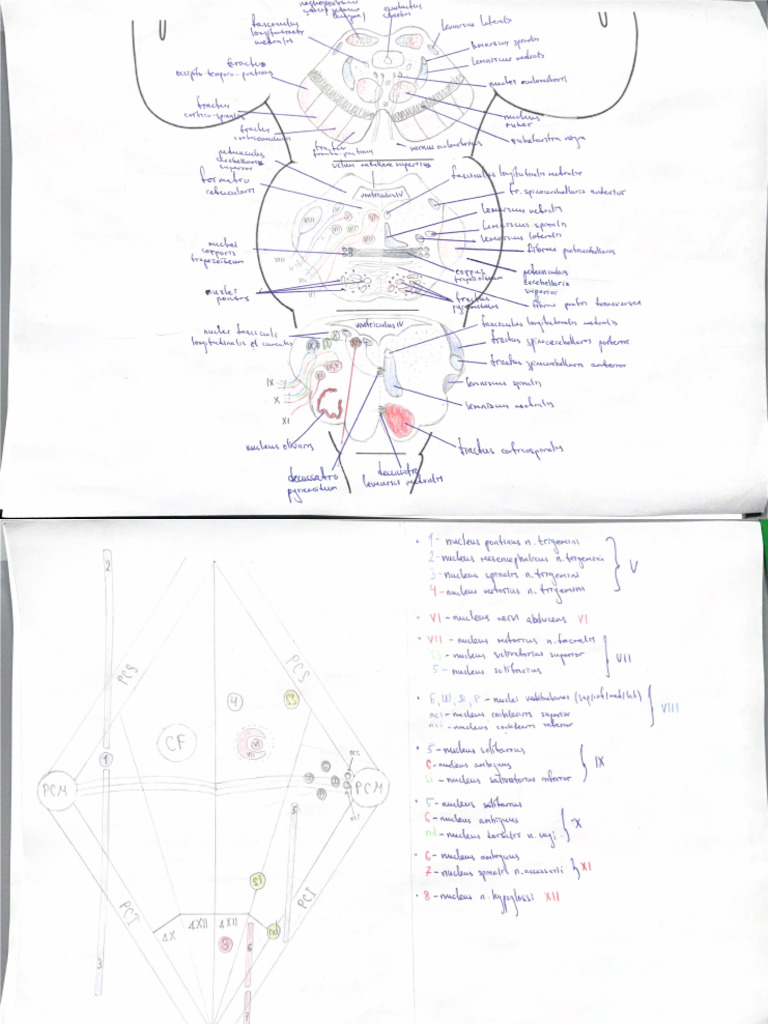 fasciculus
longitudinalis
medialis
lemniscus lateralis
lemniscus spinalis
lemniscus medialis
tractus
occipito-temporo-pontinus
nuclei oculomotoris
tractus
cortico-spinalis
nucleus
ruber
substantia nigra
tractus
corticonuclearis
tractus
fronto-pontinus
nervus oculomotorius
pedunculus
cerebellaris
superior
velum medullare superius
formatio
reticularis
ventriculus IV
fasciculus longitudinalis medialis
tr. spinocerebellaris anterior
lemniscus medialis
lemniscus spinalis
lemniscus lateralis
VIII
VI
VII
nuclei
corporis
trapezoideum
fibrae pontocerebellares
VIII
VII
V
VI
corpus
trapezoideum
pedunculus
cerebellaris
superior
nuclei
pontis
tractus
pyramidalis
fibrae pontis transversae
ventriculus IV
nuclei fasciculi
longitudinalis et cuneatus
fasciculus longitudinalis medialis
tractus spinocerebellaris posterior
tractus spinocerebellaris anterior
lemniscus spinalis
lemniscus medialis
IX
X
XI
nucleus olivaris
tractus corticospinalis
decussatio
pyramidum
decussatio
lemnisci medialis
2
PCS
PCS
4
CF
VI
1
PCM
PCM
5
PCI
PCI
ΔX
ΔXII
ΔXII
8
6
nd
3
7
• 1 - nucleus pontinus n. trigemini
2 - nucleus mesencephalicus n. trigemini
3 - nucleus spinalis n. trigemini
4 - nucleus motorius n. trigemini
V
• VI - nucleus nervi abducens VI
• VII - nucleus motorius n. facialis
- nucleus salivatorius superior
5 - nucleus solitarius
VII
- nuclei vestibulares
ncs - nucleus cochlearis superior
nci - nucleus cochlearis inferior
VIII
• 5 - nucleus solitarius
6 - nucleus ambiguus
si - nucleus salivatorius inferior
IX
• 5 - nucleus solitarius
6 - nucleus ambiguus
nd - nucleus dorsalis n. vagi
X
• 6 - nucleus ambiguus
7 - nucleus spinalis n. accessorii
XI
• 8 - nucleus n. hypoglossi XII